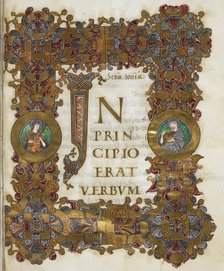 IN
PRIN
CIPIO
ERAT
VERBVM